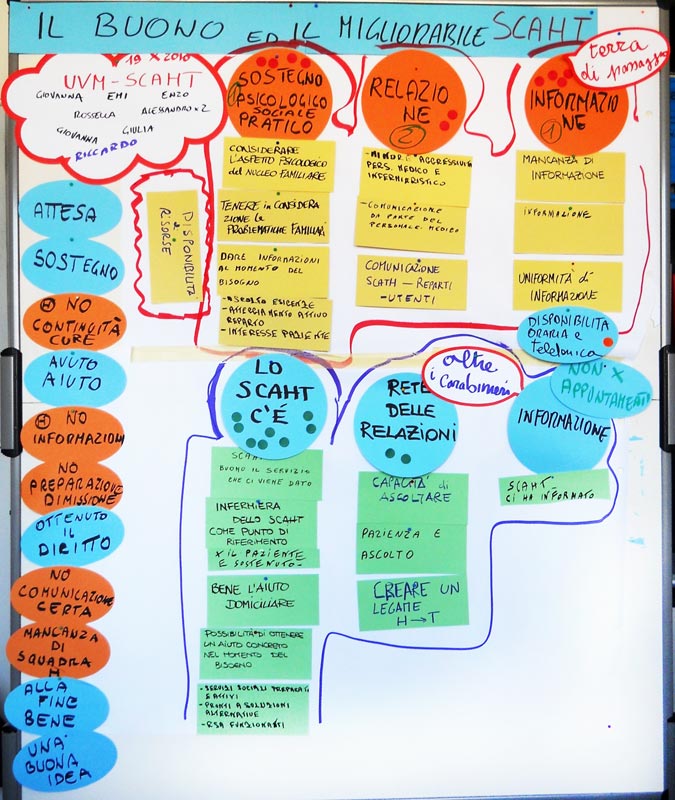 IL BUONO ED IL MIGLIORABILE SCAHT
terra
di passaggio
19 X 2010
UVM-SCAHT
GIOVANNA EMI ENZO
ROSSELLA ALESSANDRO x 2
GIOVANNA GIULIA
RICCARDO
SOSTEGNO
PSICOLOGICO
SOCIALE
PRATICO
RELAZIO
NE
2
INFORMAZIO
NE
1
CONSIDERARE
L'ASPETTO PSICOLOGICO
del NUCLEO FAMILIARE
TENERE in CONSIDERA
ZIONE le
PROBLEMATICHE FAMILIARI
DARE INFORMAZIONI
AL MOMENTO DEL
BISOGNO
- ASCOLTO ESIGENZE
- ATTEGGIAMENTO ATTIVO
REPARTO
- INTERESSE PAZIENTE
- MINORE AGGRESSIVITÀ
PERS. MEDICO E
INFERMIERISTICO
- COMUNICAZIONE
DA PARTE DEL
PERSONALE MEDICO
COMUNICAZIONE
SCATH - REPARTI
- UTENTI
MANCANZA DI
INFORMAZIONE
INFORMAZIONE
UNIFORMITÀ di
INFORMAZIONE
DISPONIBILITÀ
ORARIA e
telefonica
NON X
APPUNTAMENTI
DISPONIBILITÀ
e
RISORSE
ATTESA
SOSTEGNO
H NO
CONTINUITÀ
CURE
AVUTO
AIUTO
H NO
INFORMAZIONI
NO
PREPARAZIONE
DIMISSIONE
OTTENUTO
IL
DIRITTO
NO
COMUNICAZIONE
CERTA
MANCANZA
DI
SQUADRA
H
ALLA
FINE
BENE
UNA
BUONA
IDEA
LO
SCAHT
C'É
SCAHT
BUONO IL SERVIZIO
CHE CI VIENE DATO
INFERMIERA
DELLO SCAHT
COME PUNTO DI
RIFERIMENTO
X IL PAZIENTE
E SOSTENUTO-
BENE L'AIUTO
DOMICILIARE
POSSIBILITÀ DI OTTENERE
UN AIUTO CONCRETO
NEL MOMENTO DEL
BISOGNO
- SERVIZI SOCIALI PREPARATI
E ATTIVI
- PRONTI A SOLUZIONI
ALTERNATIVE
- RSA FUNZIONANTI
altre
i carabinieri
RETE
DELLE
RELAZIONI
CAPACITÀ di
ASCOLTARE
PAZIENZA E
ASCOLTO
CREARE UN
LEGAME
H→T
INFORMAZIONE
SCAHT
CI HA INFORMATO